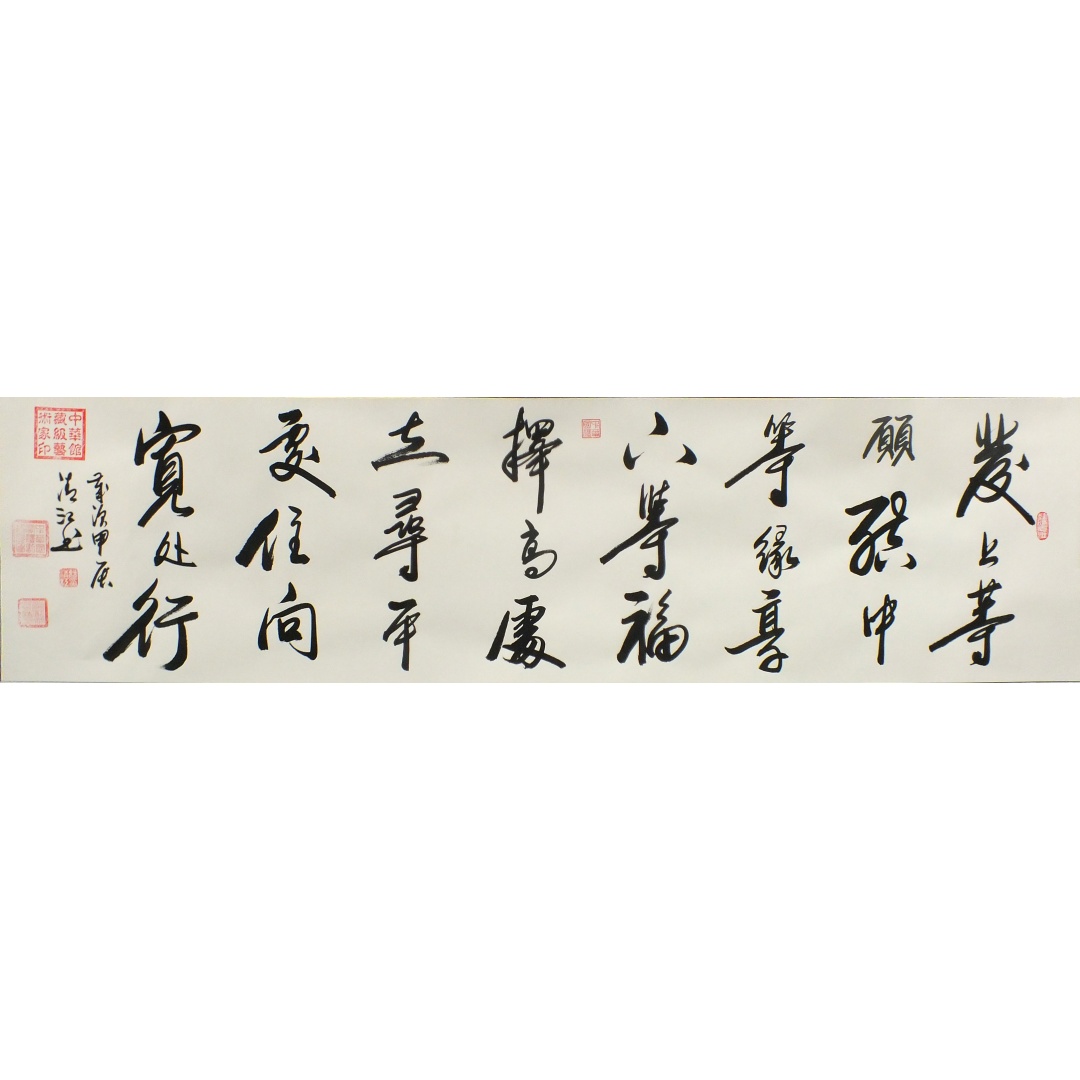 發上等
願結中
等緣享
下等福
擇高處
立尋平
處住向
寬处行
歲次甲辰
清江书
中華館
藏級藝
術家印